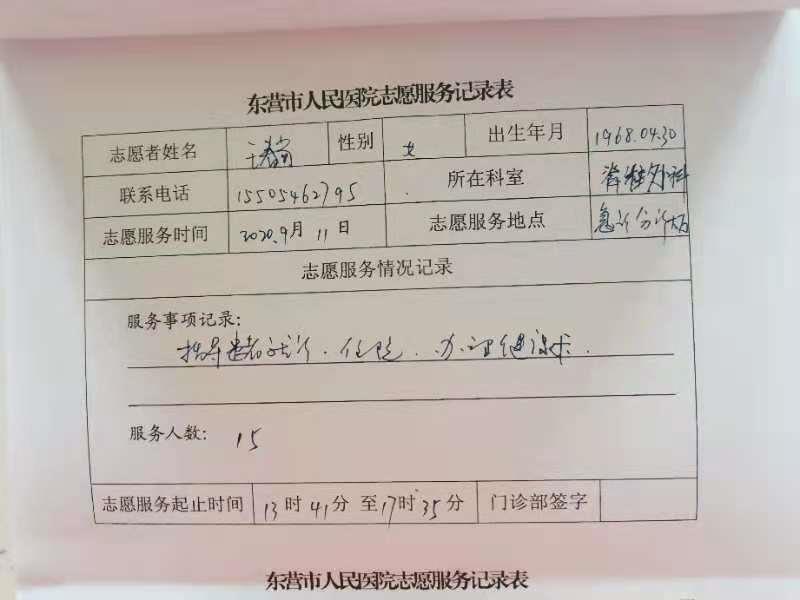 东营市人民医院志愿服务记录表
志愿者姓名 性别 女 出生年月 1968.04.30
联系电话 15505462795 所在科室 脊柱外科
志愿服务时间 2020.9月11日 志愿服务地点 急诊分诊
志愿服务情况记录
服务事项记录:
指导患者就诊、住院、办理健康卡.
服务人数: 15
志愿服务起止时间 13时41分至17时35分 门诊部签字
东营市人民医院志愿服务记录表